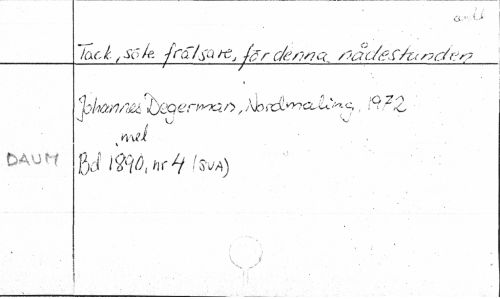 Tack, söte frälsare, för denna nådestunden
Johannes Degerman, Nordmaling, 1972
mel
DAUM Bd 1890, nr 4 (SVA)